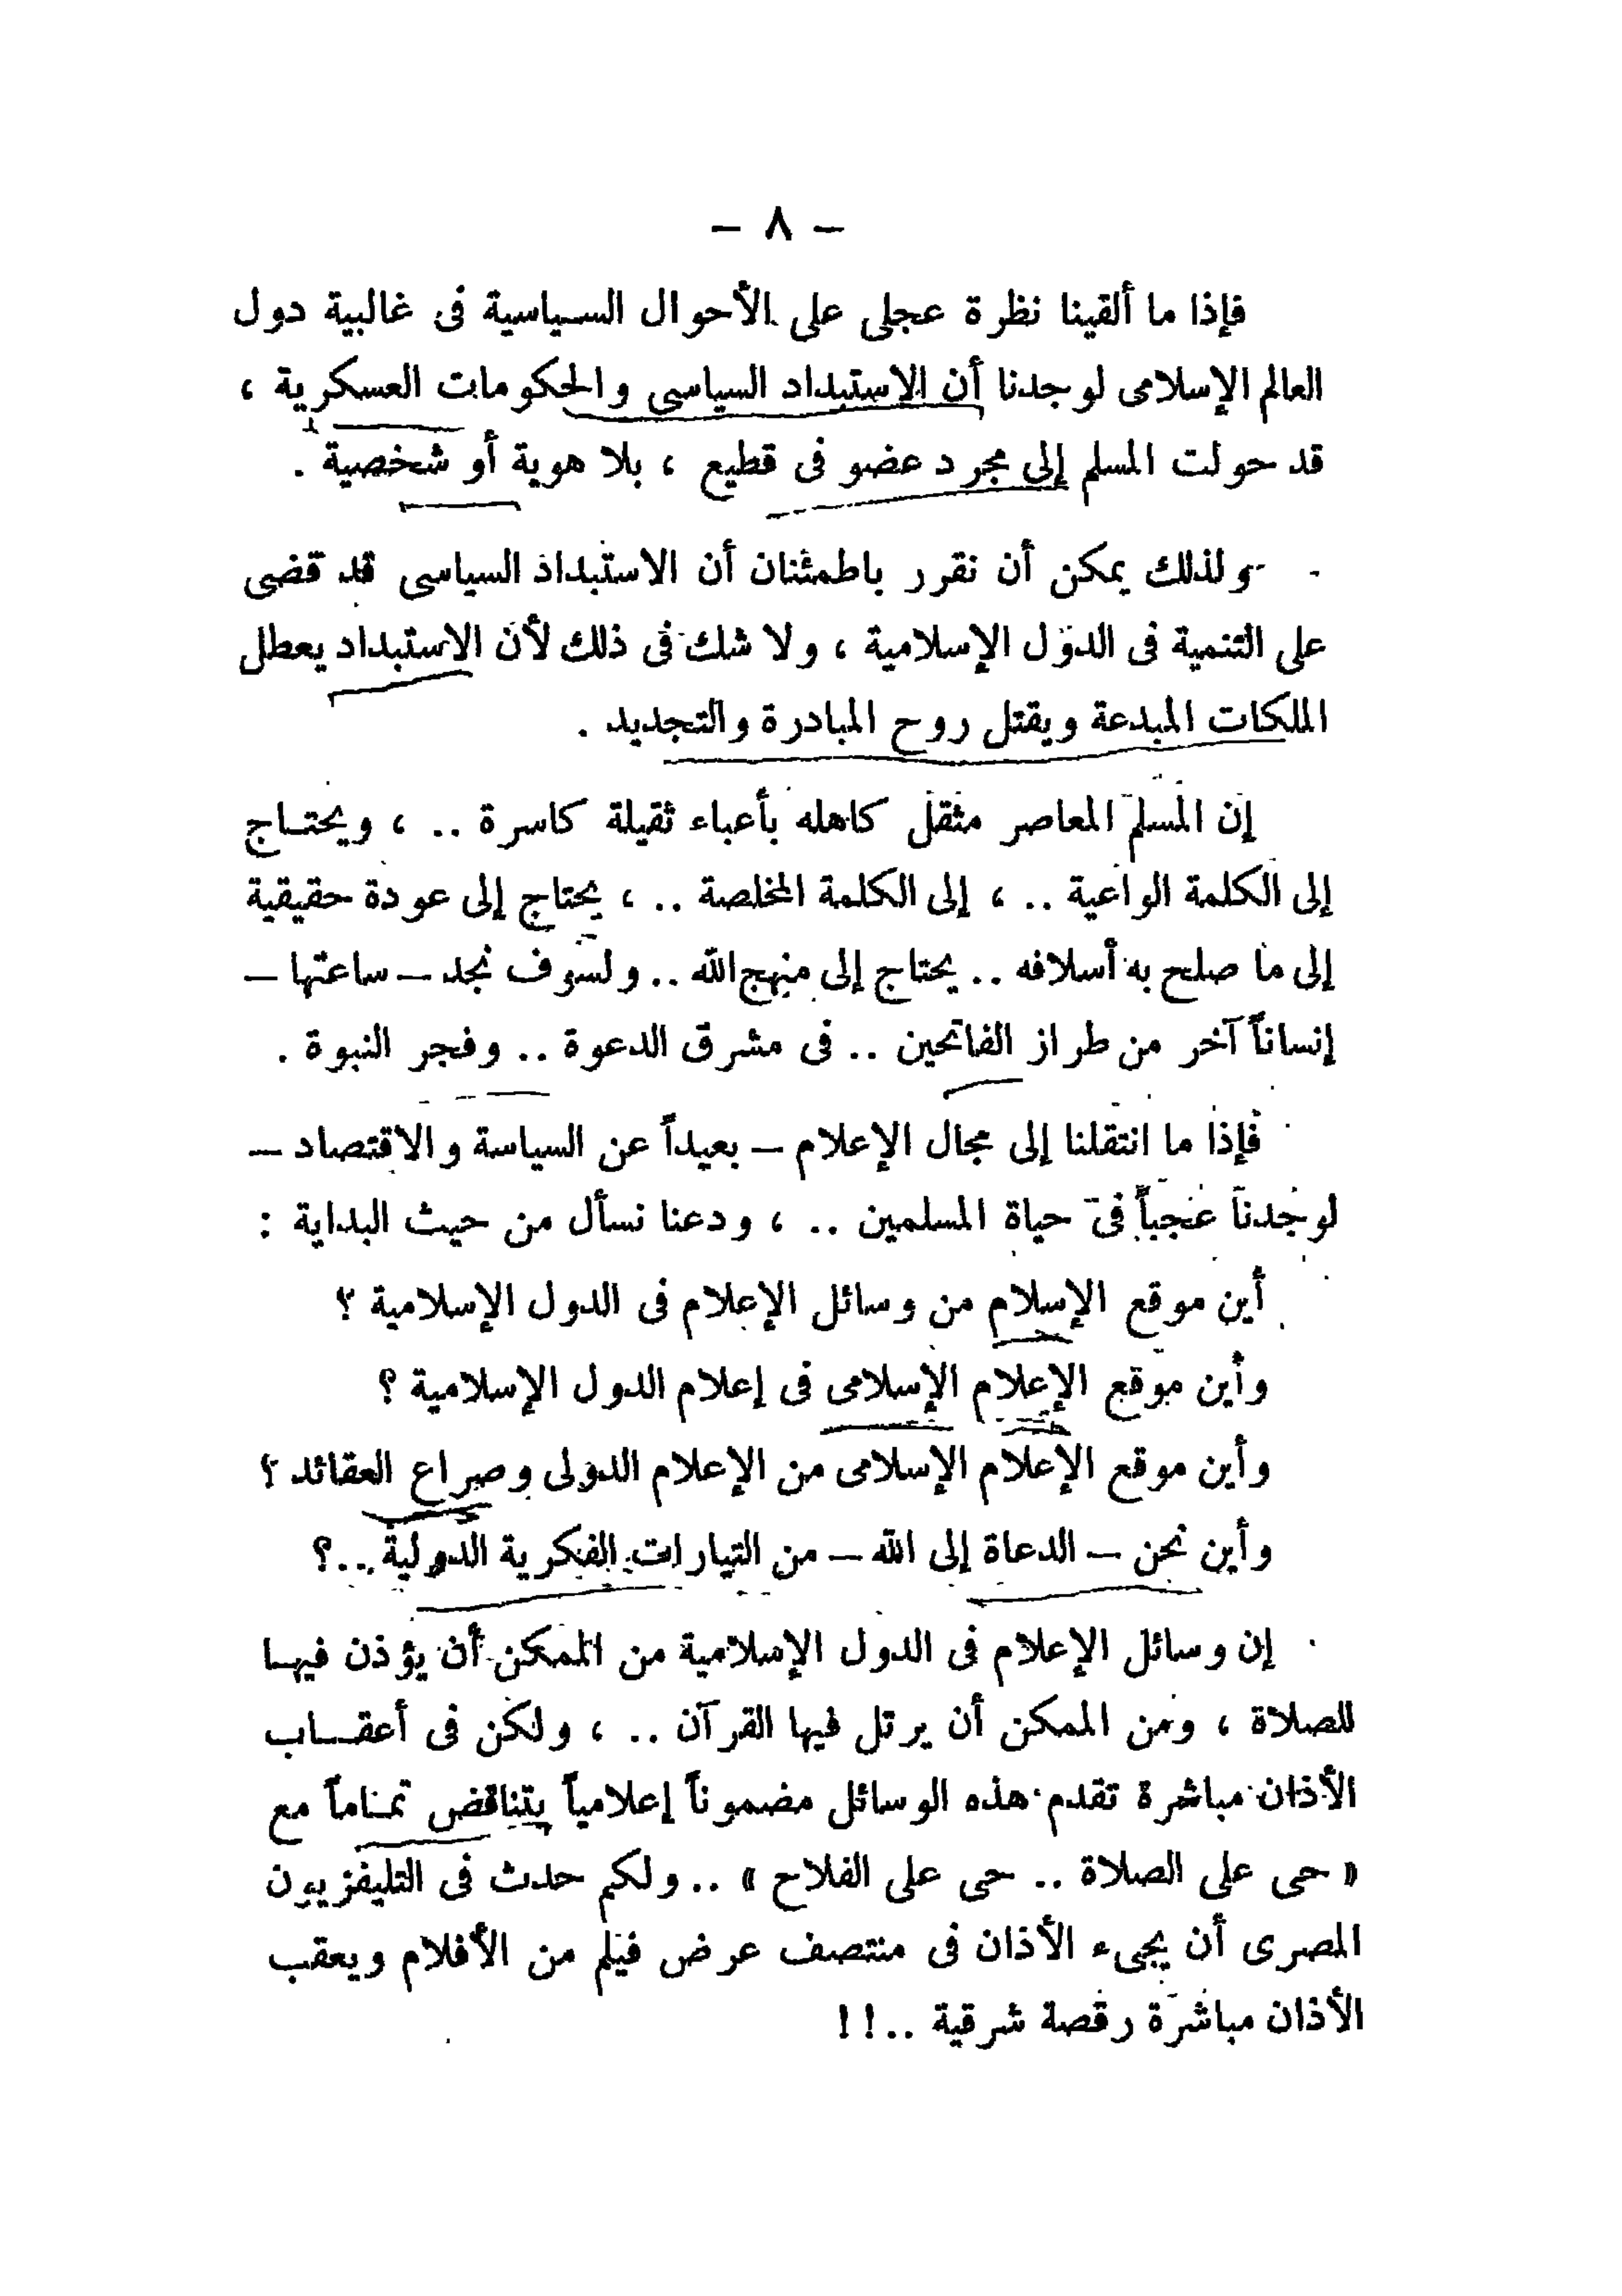 – ٨ –
فإذا ما ألقينا نظرة عجلى على الأحوال السياسية فى غالبية دول
العالم الإسلامى لوجدنا أن الاستبداد السياسى والحكومات العسكرية ،
قد حولت المسلم إلى مجرد عضو فى قطيع ، بلا هوية أو شخصية .
ولذلك يمكن أن نقرر باطمئنان أن الاستبداد السياسى قد قضى
على التنمية فى الدول الإسلامية ، ولا شك فى ذلك لأن الاستبداد يعطل
الملكات المبدعة ويقتل روح المبادرة والتجديد .
إن المسلم المعاصر مثقل كاهله بأعباء ثقيلة كاسرة .. ، ويحتاج
إلى الكلمة الواعية .. ، إلى الكلمة المخلصة .. ، يحتاج إلى عودة حقيقية
إلى ما صلح به أسلافه .. يحتاج إلى منهج الله .. ولسوف نجد – ساعتها –
إنساناً آخر من طراز الفاتحين .. فى مشرق الدعوة .. وفجر النبوة .
فإذا ما انتقلنا إلى مجال الإعلام – بعيداً عن السياسة والاقتصاد –
لوجدنا عجباً فى حياة المسلمين .. ، ودعنا نسأل من حيث البداية :
أين موقع الإسلام من وسائل الإعلام فى الدول الإسلامية ؟
وأين موقع الإعلام الإسلامى فى إعلام الدول الإسلامية ؟
وأين موقع الإعلام الإسلامى من الإعلام الدولى وصراع العقائد ؟
وأين نحن – الدعاة إلى الله – من التيارات الفكرية الدولية ..؟
إن وسائل الإعلام فى الدول الإسلامية من الممكن أن يؤذن فيها
للصلاة ، ومن الممكن أن يرتل فيها القرآن .. ، ولكن فى أعقاب
الأذان مباشرة تقدم هذه الوسائل مضموناً إعلامياً يتناقض تماماً مع
« حى على الصلاة .. حى على الفلاح » .. ولكم حدث فى التليفزيون
المصرى أن يجىء الأذان فى منتصف عرض فيلم من الأفلام ويعقب
الأذان مباشرة رقصة شرقية ..!!